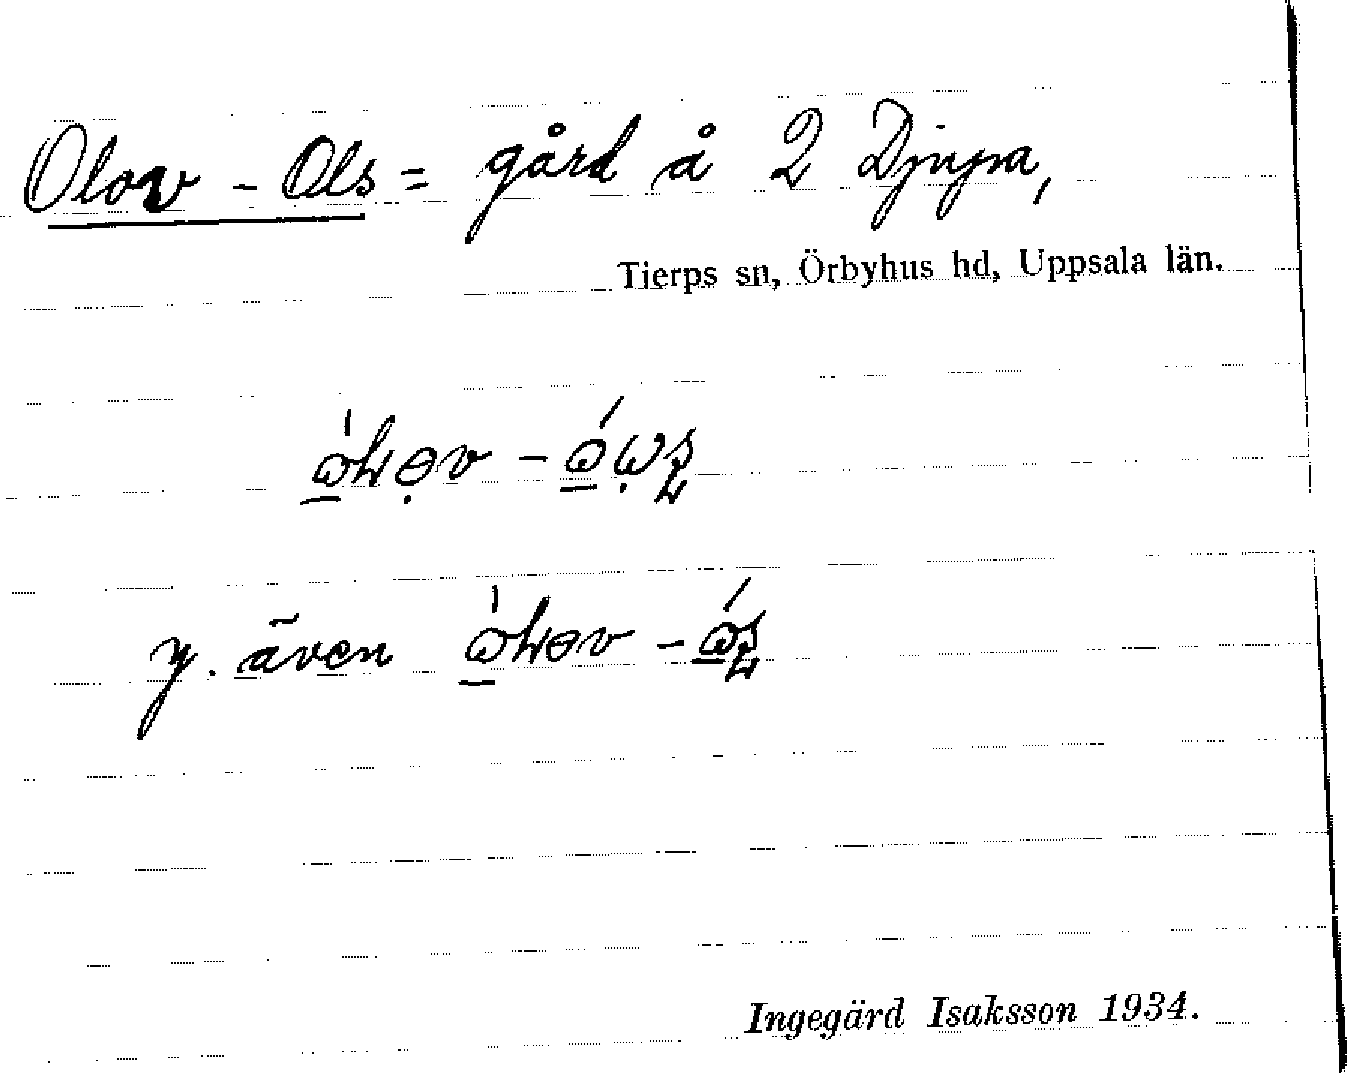 Olov - Ols = gård å 2 Djupa,
Tierps sn, Örbyhus hd, Uppsala län.
y. även
Ingegärd Isaksson 1934.